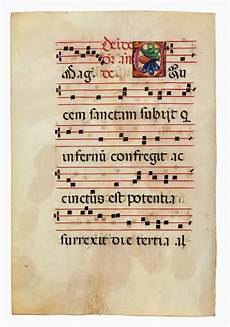 Mag. CRu
cem sanctam subijt q
infernū confregit ac
cinctus est potentia
surrexit die tertia al